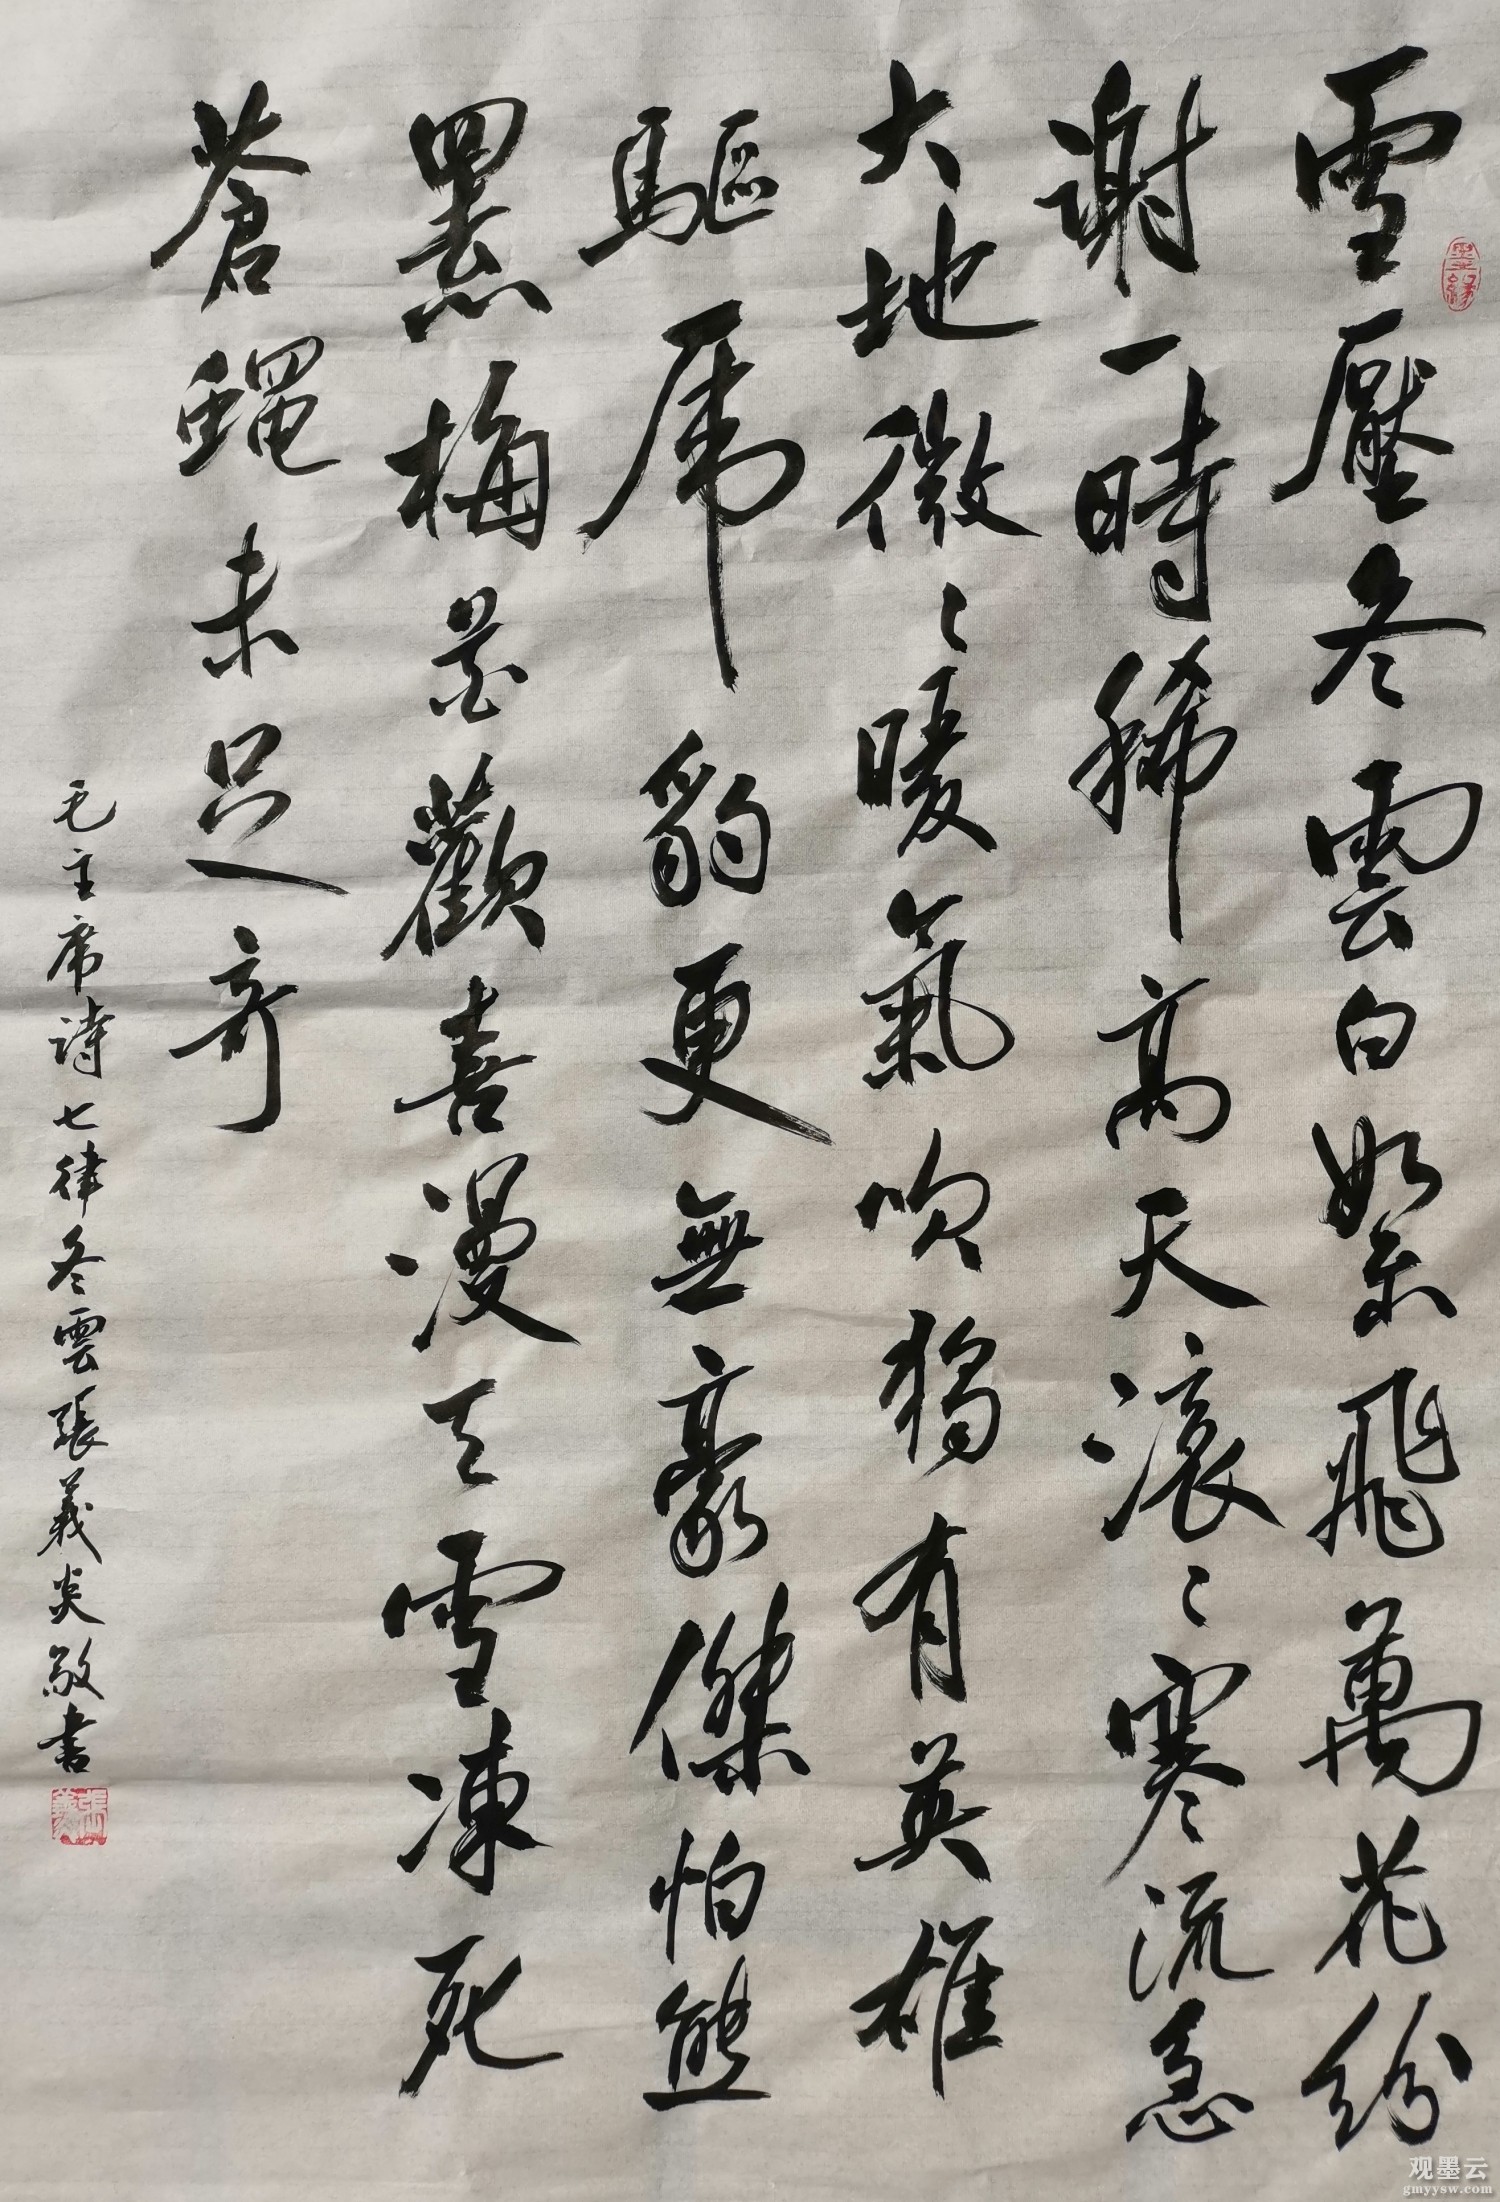 雪壓冬雲白絮飛萬花紛
謝一時稀高天滾〻寒流急
大地微〻暖氣吹獨有英雄
驅虎豹更無豪傑怕熊
羆梅花歡喜漫天雪凍死
蒼蠅未足奇
毛主席詩七律冬雲張義炎敬書
墨緣
观墨云
gmyysw.com